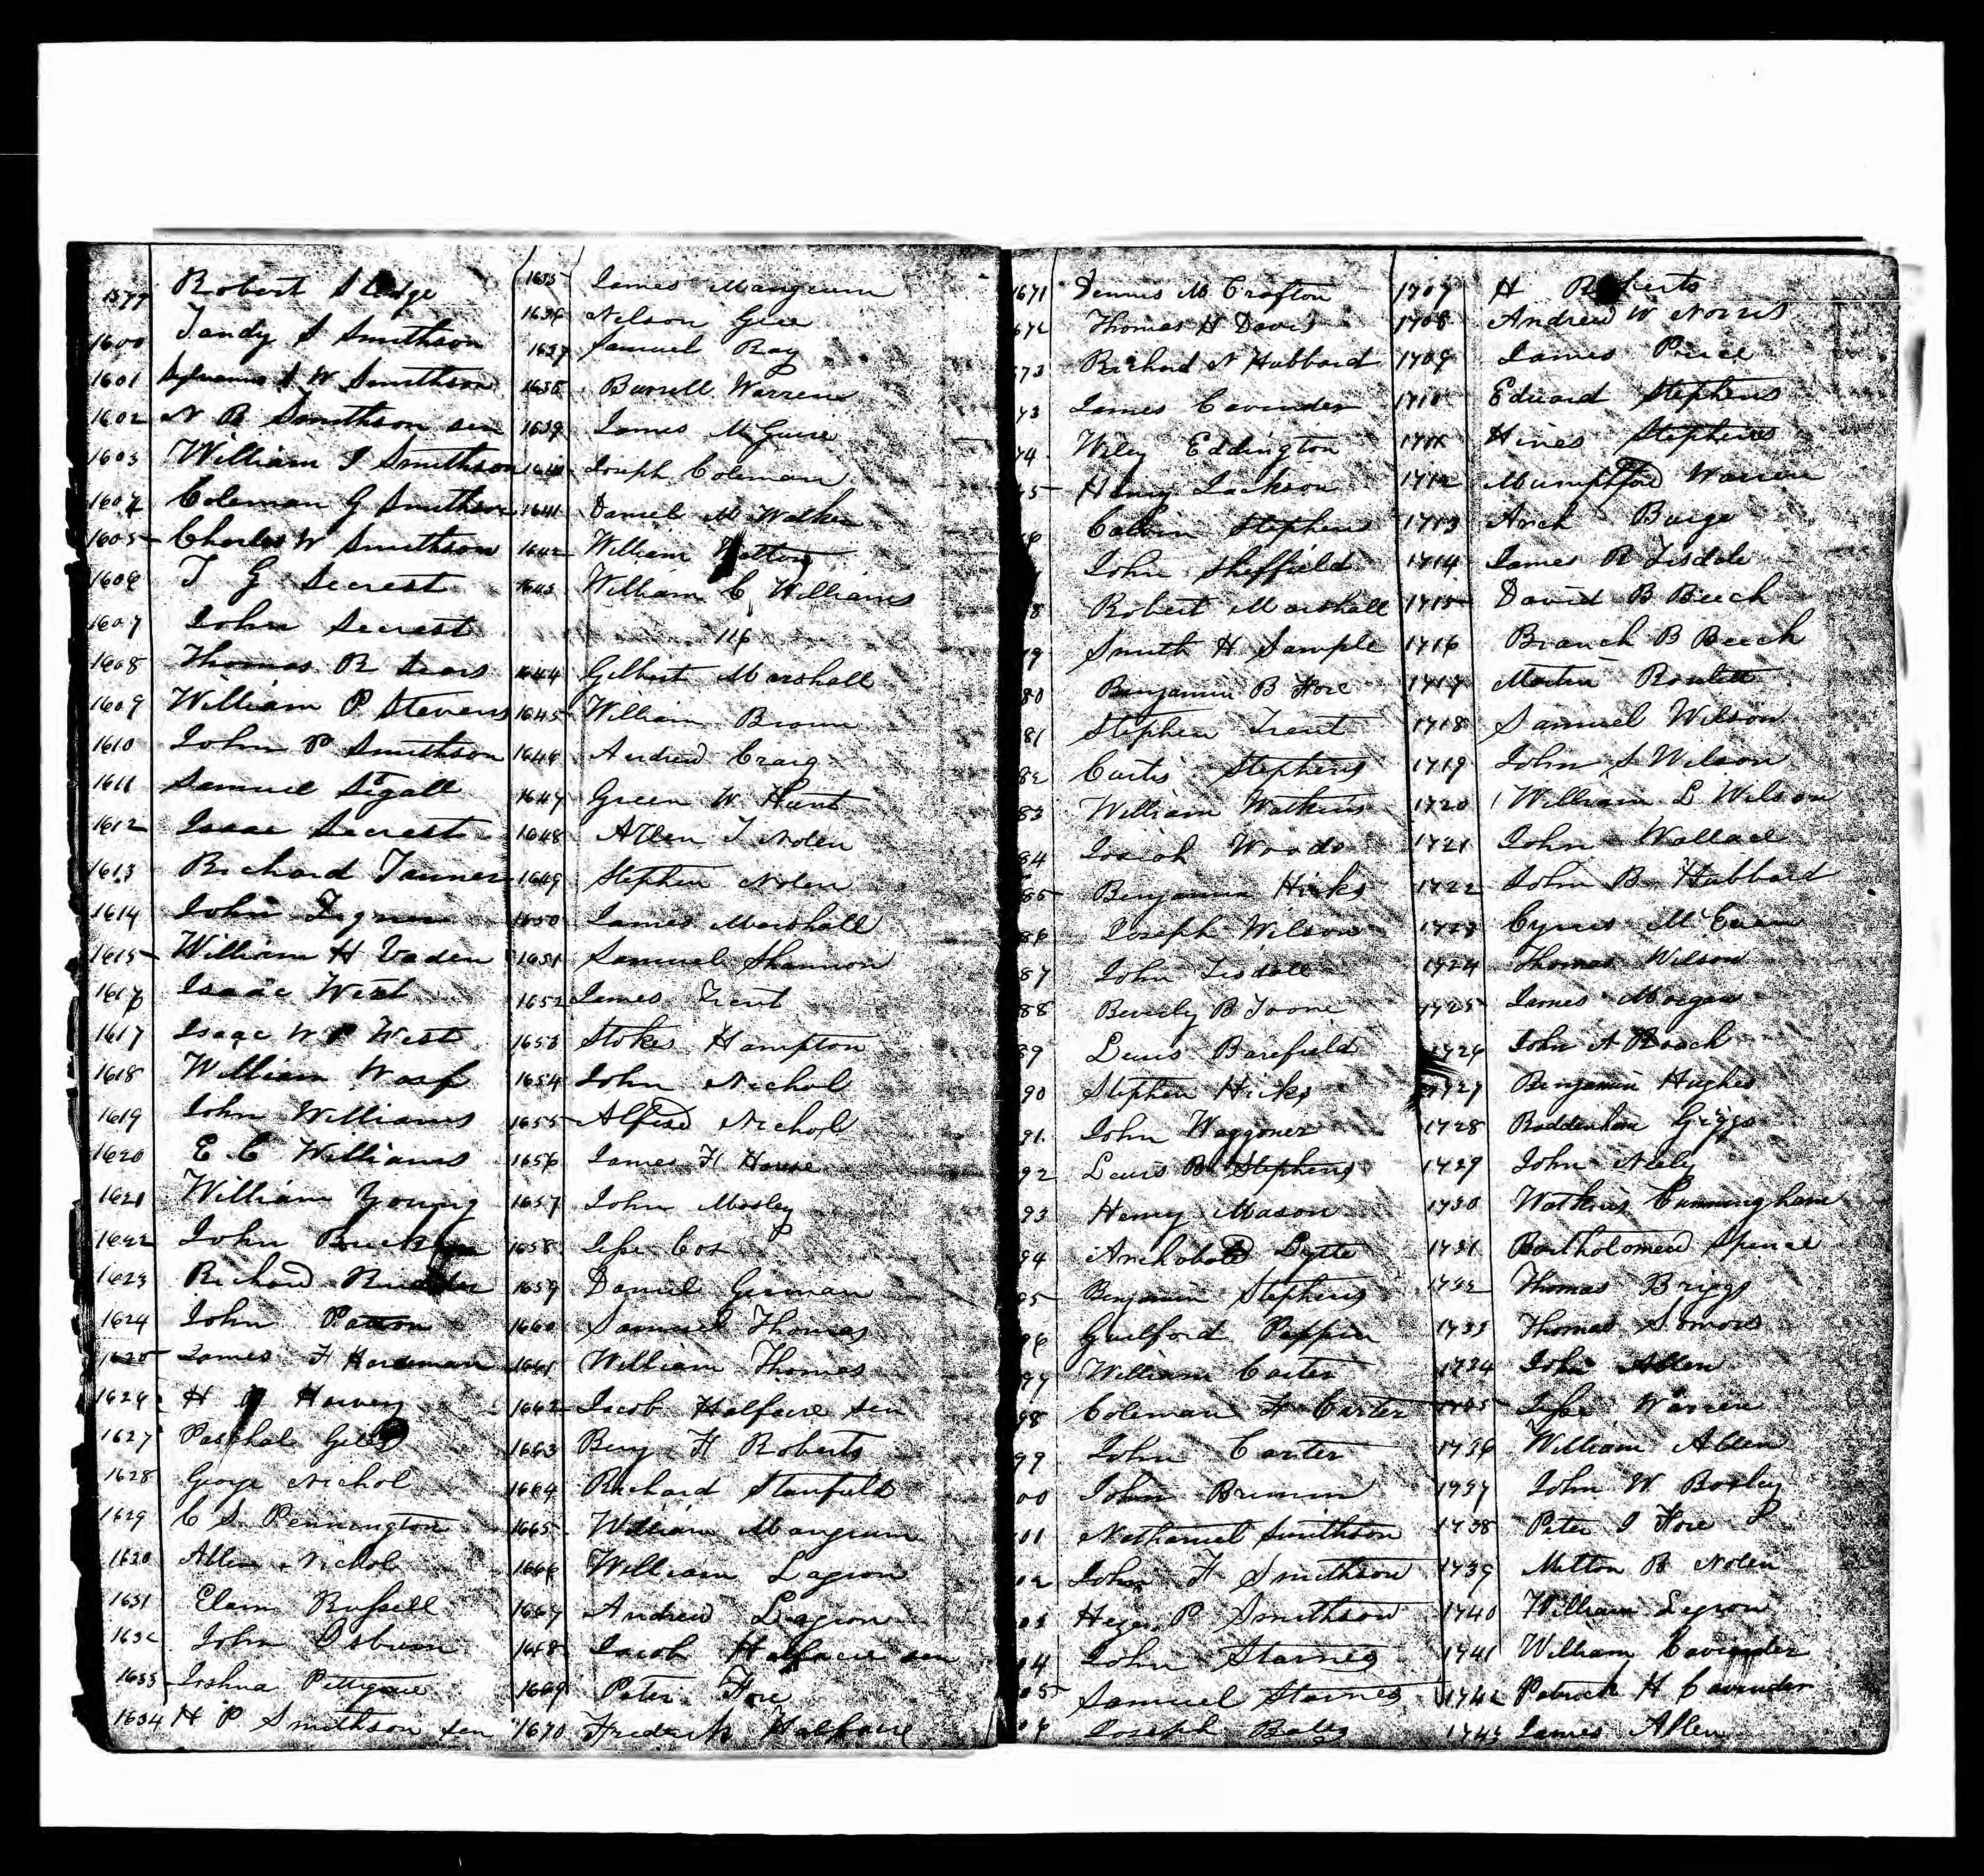 1599 Robert Sledge
1600 Tandy S Smithson
1601 Sylvanus S W Smithson
1602 N B Smithson sen
1603 William I Smithson
1604 Coleman G Smithson
1605 Charles W Smithson
1606 T G Secrest
1607 John Secrest
1608 Thomas R Sears
1609 William P Stevens
1610 John P Smithson
1611 Samuel Sigall
1612 Isaac Secrest
1613 Richard Tanner
1614 John
1615 William H Vaden
1616 Isaac West
1617 Isaac W P West
1618 William
1619 John Williams
1620 E C Williams
1621 William Young
1622 John
1623 Richard
1624 John Patton
1625 James F Hardeman
1626 H Harvey
1627 Paschal Giles
1628 George Nichol
1629 C S Pennington
1630 Allen Nichol
1631 Elam Russell
1632 John Osburn
1633 Joshua Pettigrue
1634 H P Smithson sen
1635 James Mangrum
1636 Nelson Gee
1637 Samuel Ray
1638 Burrell Warren
1639 James McGuire
1640 Joseph Coleman
1641 Daniel M Walker
1642 William
1643 William C Williams
116
1644 Gilbert Marshall
1645 William Brown
1646 Andrew Craig
1647 Green W Hunt
1648 Allen T Nolen
1649 Stephen Nolen
1650 James Marshall
1651 Samuel Shannon
1652 James Trent
1653 Stokes Hampton
1654 John Nichol
1655 Alfred Nichol
1656 James H House
1657 John Mosley
1658 Jesse Cox
1659 Daniel German
1660 Samuel Thomas
1661 William Thomas
1662 Jacob Halfacre sen
1663 Benj H Roberts
1664 Richard Stanfield
1665 William Mangrum
1666 William Lagron
1667 Andrew Lagron
1668 Jacob Halfacre sen
1669 Peter Fore
1670 Frederick Halfacre
1671 Dennis M Crafton
672 Thomas H Davis
673 Richard N Hubbard
73 James Cavinder
74 Wiley Eddington
75 Henry Jackson
76 Calvin Stephens
John Sheffield
8 Robert Marshall
79 Smith H Sample
80 Benjamin B Fore
81 Stephen Trent
82 Curtis Stephens
83 William Watkins
84 Josiah Woods
85 Benjamin Hicks
86 Joseph Wilson
87 John Tisdale
88 Beverly B Toone
89 Lewis Barefield
90 Stephen Hicks
91 John Waggoner
92 Lewis B Stephens
93 Henry Mason
94 Archobald Lytle
95 Benjamin Stephens
96 Guilford Pippin
97 William Carter
98 Coleman F Carter
99 John Carter
00 John
01 Nathaniel Smithson
02 John F Smithson
03 P Smithson
04 John Starnes
05 Samuel Starnes
06 Joseph Bates
1707 H Roberts
1708 Andrew W Norris
1709 James Price
1710 Edward Stephens
1711 Hines Stephens
1712 Warren
1713 Arch Buige
1714 James R Tisdale
1715 David B Beech
1716 Branch B Beech
1717 Martin Rowlett
1718 Samuel Wilson
1719 John S Wilson
1720 William L Wilson
1721 John Wallace
1722 John B Hubbard
1723 Cyrus McEwen
1724 Thomas Wilson
1725 James Morgan
1726 John A Roach
1727 Benjamin Hughes
1728 Boddenham Griggs
1729 John Neely
1730 Watkins Cunningham
1731 Bartholomew Spence
1732 Thomas Briggs
1733 Thomas Simons
1734 John Allen
1735 Jesse Warren
1736 William Allen
1737 John W Boxley
1738 Peter I Fore
1739 Milton B Nolen
1740 William Legron
1741 William Cavinder
1742 Patrick H Cavinder
1743 James Allen